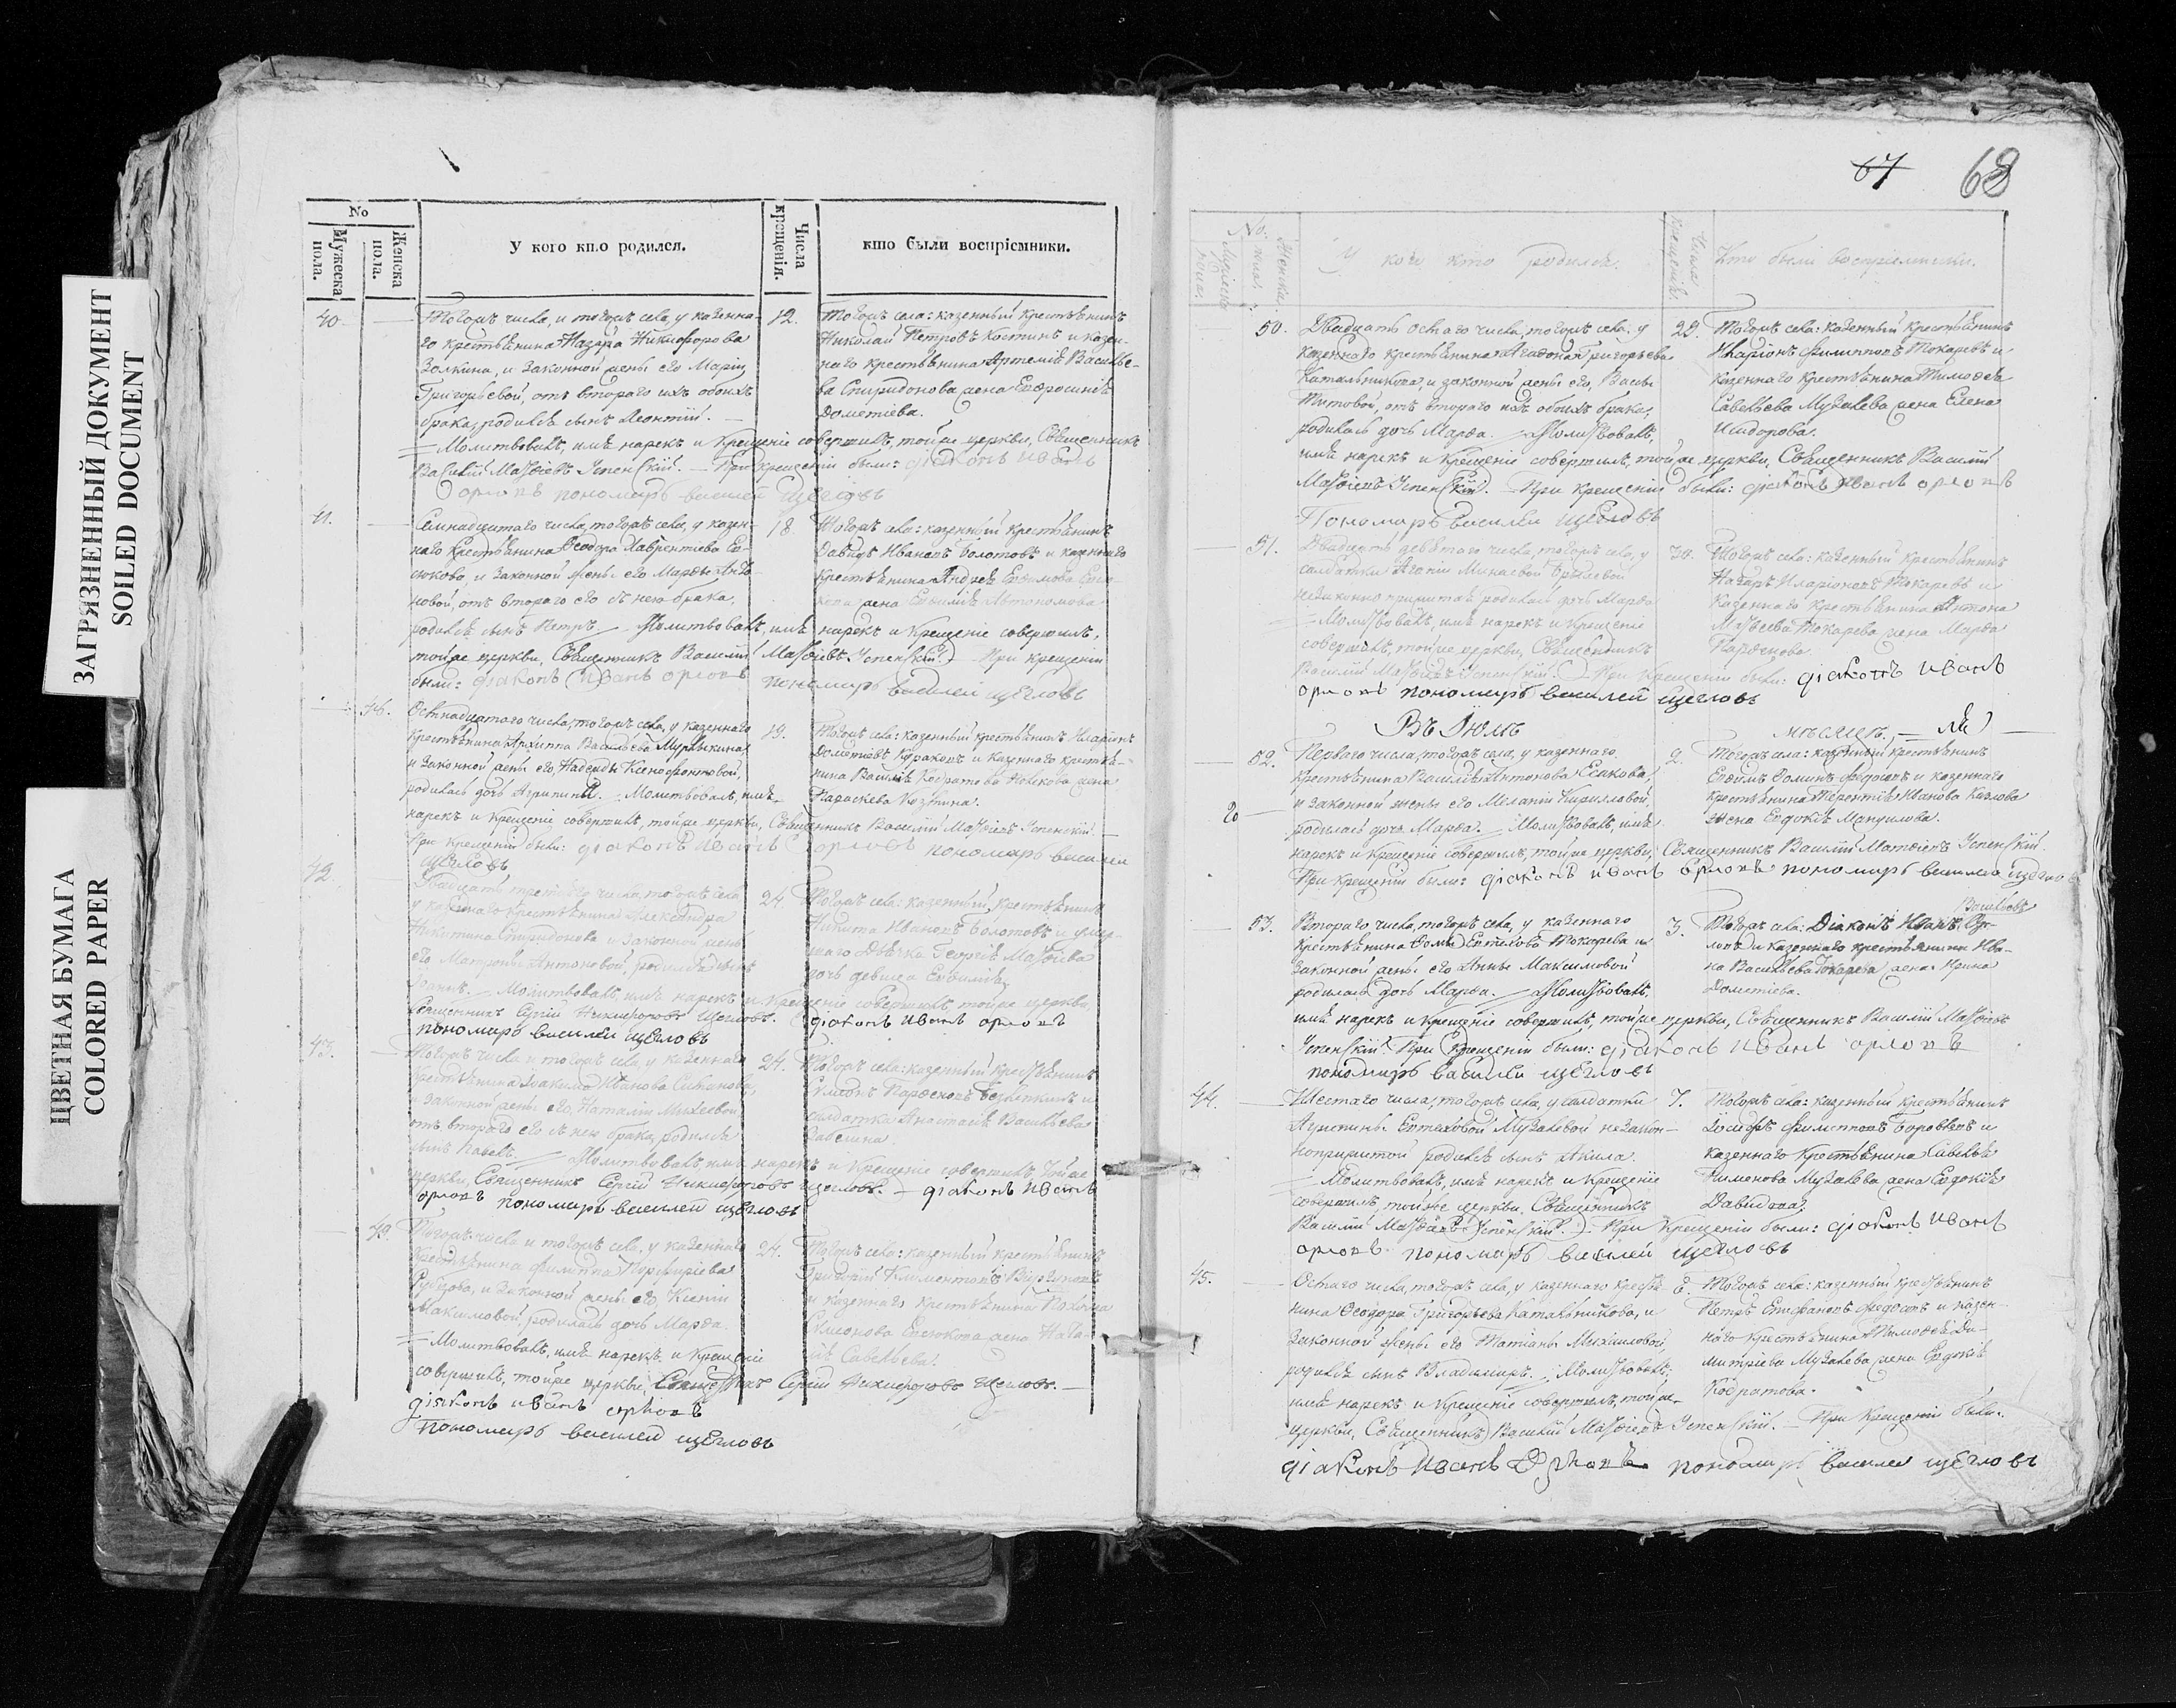 ЗАГРЯЗНЕННЫЙ ДОКУМЕНТ
SOILED DOCUMENT
ЦВЕТНАЯ БУМАГА
COLORED PAPER
No
Мужеска пола.
Женска пола.
У кого кто родился.
Числа крещенія.
кто были воспріемники.
40.
Тогожъ числа, и тогожъ села, у казенна-
го крестьянина Назара Никифорова
Золкина, и законной жены его Маріи
Григорьевой, отъ втораго ихъ обоихъ
брака, родился сынъ Леонтій.
12.
Тогожъ села: казенный крестьянинъ
Николай Петровъ Костинъ и казен-
наго крестьянина Артемія Василье-
ва Спиридонова жена Евфросинія
Дометіева.
Молитвовалъ, имя нарекъ и Крещеніе совершилъ, тойже церкви, Священникъ
Василій Матѳіевъ Успенскій. — При крещеніи были: діаконъ Иванъ
орловъ пономарь василей щегловъ
41.
Семнадцатаго числа, тогожъ села, у казен-
наго крестьянина Ѳеодора Лаврентіева
и законной жены его Марѳы
новой, отъ втораго его съ нею брака,
родился сынъ Петръ. Молитвовалъ, имя нарекъ и Крещеніе совершилъ,
тойже церкви, Священникъ Василій Матѳіевъ Успенскій. При крещеніи
были: діаконъ Иванъ орловъ пономарь василей щегловъ
18
Тогожъ села: казенный крестьянинъ
Давидъ Ивановъ Болотовъ и казеннаго
крестьянина Андрея
жена Евфимія Автономова
46.
Осмнадцатаго числа, тогожъ села, у казеннаго
крестьянина Архиппа Васильева Мурзыкина,
и законной жены его, Надежды Ксенофонтовой,
родилась дочь Агрипина. Молитвовалъ, имя
нарекъ и Крещеніе совершилъ, тойже церкви, Священникъ Василій Матѳіевъ Успенскій.
При крещеніи были: діаконъ Иванъ орловъ пономарь василей
щегловъ
19.
Тогожъ села: казенный крестьянинъ Иларіонъ
Дометіевъ и казеннаго крестья-
нина Василія жена
Параскева Кузьмина.
42.
Двадцать третьяго числа, тогожъ села
у казеннаго крестьянина Александра
Никитина Спиридонова и законной жены
его Матроны Антоновой, родился сынъ
Іоаннъ. — Молитвовалъ, имя нарекъ и Крещеніе совершилъ тойже церкви,
Священникъ Сергій Никифоровъ Щегловъ. діаконъ Иванъ орловъ
пономарь василей щегловъ
24
Тогожъ села: казенный крестьянинъ
Никита Ивановъ Болотовъ и умер-
шаго Дьячка Георгія Матѳіева
дочь девица Евфимія
43.
Тогожъ числа и тогожъ села, у казеннаго
крестьянина Іоакима Иванова
и законной жены его, Наталіи Михеевой
отъ втораго его съ нею брака, родился
сынъ Павелъ. Молитвовалъ, имя нарекъ и Крещеніе совершилъ тойже
церкви, Священникъ Сергій Никифоровъ Щегловъ. — діаконъ Иванъ
орловъ пономарь василей щегловъ
24.
Тогожъ села: казенный крестьянинъ
Парѳеновъ и
солдатка Анастасія Васильева
49.
Тогожъ числа и тогожъ села, у казеннаго
крестьянина Филиппа Порфиріева
и законной жены его, Ксеніи
Максимовой, родилась дочь Марѳа.
Молитвовалъ, имя нарекъ и Крещеніе
совершилъ, тойже церкви, Священникъ Сергій Никифоровъ Щегловъ.
діаконъ Иванъ орловъ
Пономарь василей щегловъ
24.
Тогожъ села: казенный крестьянинъ
Григорій Климентовъ
и казеннаго крестьянина
жена
Савельева.
67 68
No.
У кого кто родился.
Кто были воспріемники.
50.
Двадцать осмаго числа, тогожъ села, у
казеннаго крестьянина Агаѳона Григорьева
Катальникова, и законной жены его, Вассы
Титовой, отъ втораго ихъ обоихъ брака,
родилась дочь Марѳа. Молитвовалъ,
имя нарекъ и Крещеніе совершилъ, тойже церкви, Священникъ Василій
Матѳіевъ Успенскій. При крещеніи были: діаконъ Иванъ орловъ
Пономарь василей щегловъ
29.
Тогожъ села: казенный крестьянинъ
Иларіонъ Филипповъ Токаревъ и
казеннаго крестьянина Тимоѳея
Савельева Музалева жена Елена
Исидорова.
51.
Двадцать девятаго числа, тогожъ села, у
солдатки Агапіи Минаевой
незаконно прижитая родилась дочь Марѳа
Молитвовалъ, имя нарекъ и Крещеніе
совершилъ, тойже церкви, Священникъ
Василій Матѳіевъ Успенскій. При Крещеніи были: діаконъ Иванъ
орловъ пономарь василей щегловъ
30.
Тогожъ села: казенный крестьянинъ
Назаръ Иларіоновъ Токаревъ и
казеннаго крестьянина Антона
Матвеева Токарева жена Марѳа
Парѳенова
Въ Іюлѣ мѣсяцѣ.
52.
Перваго числа, тогожъ села, у казеннаго
крестьянина Василія Антонова Есакова,
и законной жены его Меланіи Кирилловой,
родилась дочь Марѳа. Молитвовалъ, имя
нарекъ и Крещеніе совершилъ, тойже церкви, Священникъ Василій Матѳіевъ Успенскій.
При Крещеніи были: діаконъ Иванъ Орловъ пономарь василей щегловъ
2.
Тогожъ села: казенный крестьянинъ
Евфимъ Ѳоминъ Федосовъ и казеннаго
крестьянина Терентія Иванова Козлова
жена Евдокія Мануилова.
53.
Втораго числа, тогожъ села, у казеннаго
крестьянина Ѳомы Евтехова Токарева и
законной жены его Анны Максимовой
родилась дочь Марѳа. Молитвовалъ,
имя нарекъ и Крещеніе совершилъ, тойже церкви, Священникъ Василій Матѳіевъ
Успенскій. При Крещеніи были: діаконъ Иванъ орловъ
пономарь василей щегловъ
3.
Тогожъ села: Діаконъ Иванъ Васильевъ Ор-
ловъ и казеннаго крестьянина Ива-
на Васильева Токарева жена Ирина
Дометіева.
44.
Шестаго числа, тогожъ села, у солдатки
Агрепины Евтеховой Музалевой незакон-
ноприжитой родился сынъ Акила.
Молитвовалъ, имя нарекъ и Крещеніе
совершилъ, тойже церкви, Священникъ
Василій Матѳіевъ Успенскій. При Крещеніи были: діаконъ Иванъ
орловъ пономарь василей щегловъ
7.
Тогожъ села: казенный крестьянинъ
Іосифъ Филипповъ и
казеннаго крестьянина Савелья
Музалева жена Евдокія
Давидова.
45.
Осмаго числа, тогожъ села, у казеннаго кресть-
нина Ѳеодора Григорьева Катальникова, и
законной жены его Татіаны Михаиловой,
родился сынъ Владимиръ. Молитвовалъ,
имя нарекъ и Крещеніе совершилъ, тойже
церкви, Священникъ Василій Матѳіевъ Успенскій. — При Крещеніи были:
діаконъ Иванъ Орловъ пономарь василей щегловъ
Тогожъ села: казенный крестьянинъ
Петръ Епифановъ Федосовъ и казен-
наго крестьянина Тимоѳея Ди-
митріева Музалева жена Евдокія
Кодратова.